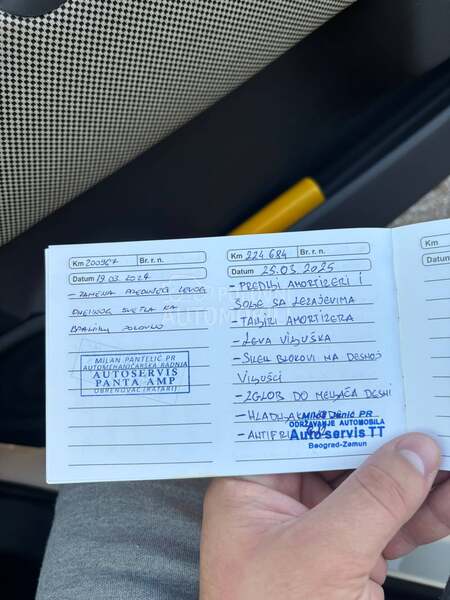 Km 200967 Br. r. n.
Datum 19.03.2024
- ZAMENA PREDNJEG LEVOG
DNEVNOG SVETLA KA
POLOVNO
MILAN PANTELIĆ PR
AUTOMEHANIČARSKA RADNJA
AUTOSERVIS
PANTA AMP
OBRENOVAC (RATARI)
Km 224 684 Br. r. n.
Datum 25.03.2025
- PREDNJI AMORTIZERI I
ŠOLJE SA LEŽAJEVIMA
- TANJIRI AMORTIZERA
- LEVA VILJUŠKA
- SILEN BLOKOVI NA DESNOJ
VILJUŠCI
- ZGLOB DO MENJAČA DESNI
- HLADNJAK
- ANTIFRIZ
Miloš Janić PR
ODRŽAVANJE AUTOMOBILA
Auto servis TT
Beograd-Zemun
Km
Datum
AUTOMOBILI